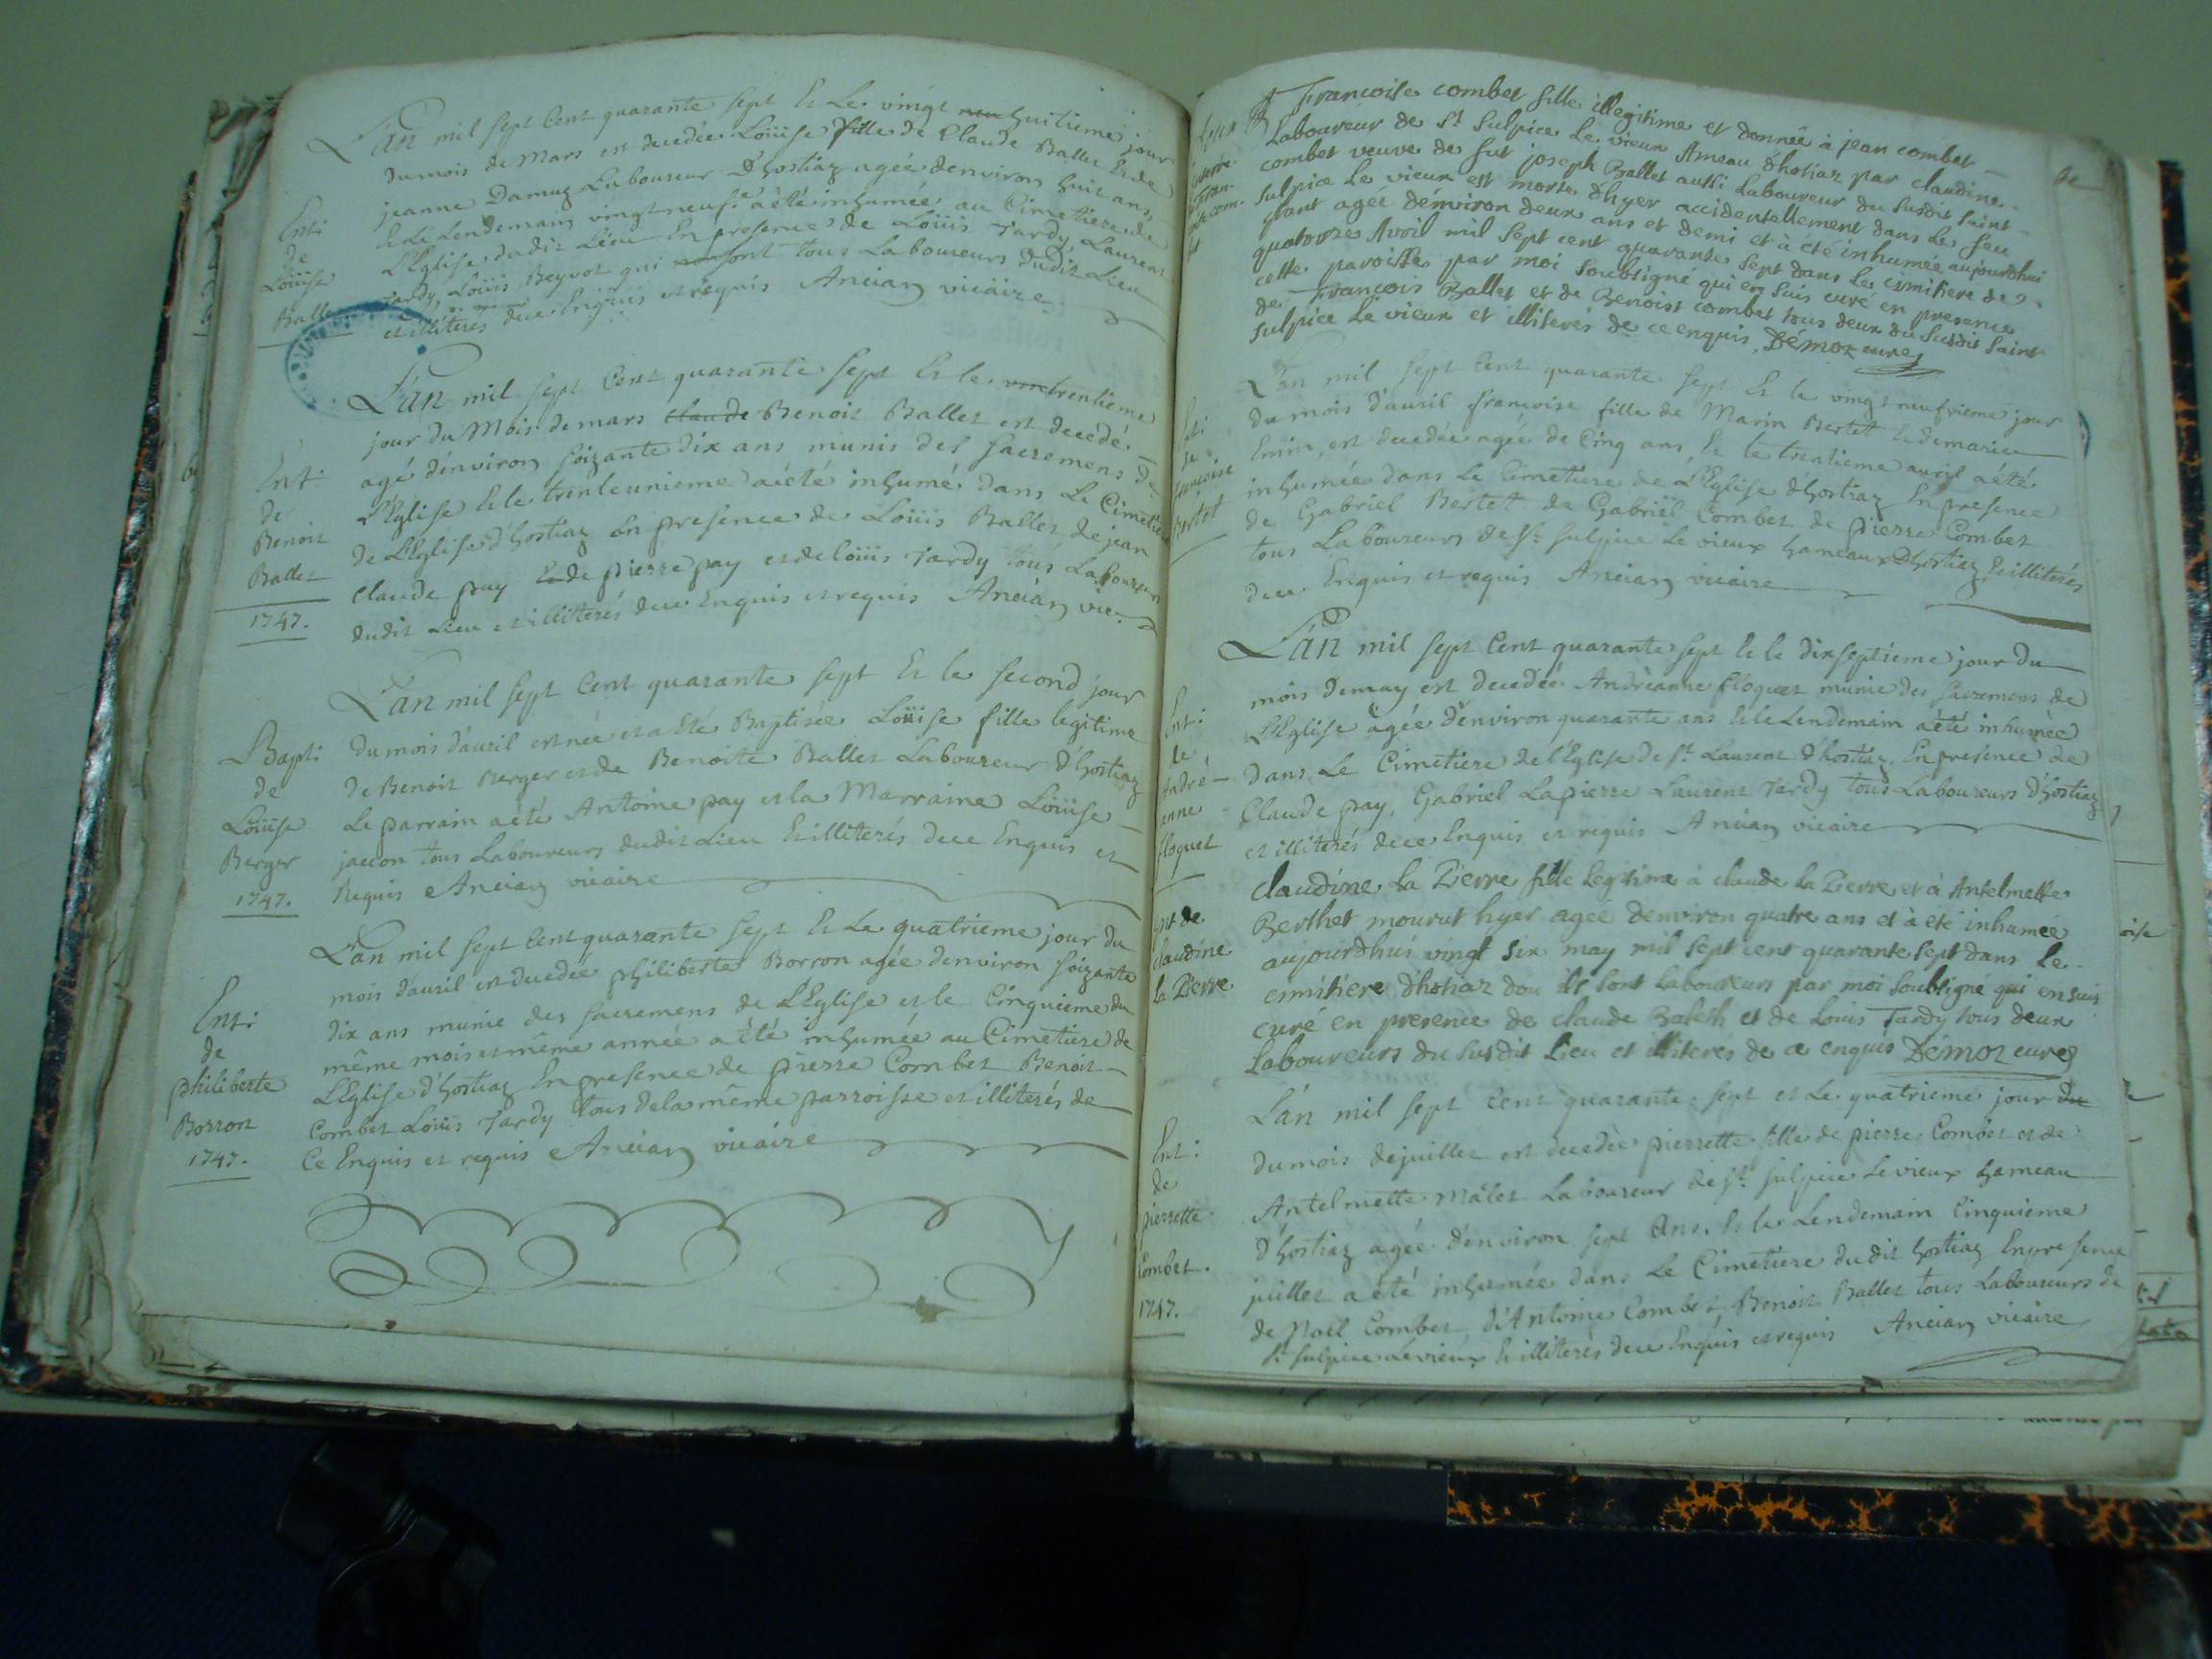 L'an mil sept Cent quarante sept Et Le vingt neu huitieme jour
du mois de Mars est decedée Loüise fille de Claude Ballet Et de
jeanne Damuz Laboureur D'hostiaz agée denviron huit ans,
Ent:
de
Loüise
Ballet
Et Le Lendemain vingt neufe a été inhumée au Cimetiere de
L'Eglise dudit Lieu En presence de Loüis Tardy, Laurent
Tardy, Loüis Beyvot qui sont tous Laboureurs dudit Lieu
et illiterés de ce Enquis et requis Ancian vicaire
L'an mil sept Cent quarante sept Et le trentieme
jour du Mois de mars claude Benoit Ballet est decedé
Ent:
de
Benoit
Ballet
1747.
agé d'environ soizante dix ans munis des sacremens de
L'Eglise Et le trenteunieme a été inhumé dans Le Cimetiere
de L'Eglise d'hostiaz En presence de Loüis Ballet de jean
claude pay Et de pierre pay et de loüis Tardy tous Laboureurs
dudit Lieu et illiterés de ce Enquis et requis Ancian vic.
L'an mil sept Cent quarante sept Et le second jour
Bapt:
de
Loüise
Berger
1747.
du mois d'auril est née et a Eté Baptisée Loüise fille legitime
de Benoit Berger et de Benoite Ballet Laboureur d'hostiaz
Le parrain a été Antoine pay et la Marraine Loüise
jaccon tous Laboureurs dudit Lieu Et illiterés de ce Enquis et
Requis Ancian vicaire
L'an mil sept Cent quarante sept Et Le quatrieme jour du
Ent:
de
philiberte
Borron
1747.
mois d'auril est decedée philiberte Borron agée denviron soizante
dix ans munie des sacremens de L'Eglise et le Cinquieme du
même mois et même année a été inhumée au Cimetiere de
L'Eglise d'hostiaz En presence de pierre Combet Benoit
Combet Loüis Tardy tous de la même parroisse et illiterés de
Ce Enquis et requis Ancian vicaire
Francoise combet fille illegitime et donnée à jean combet
Laboureur de St Sulpice Le vieux Ameau d'hotiaz par claudine
combet veuve de fut joseph Ballet aussi Laboureur du susdit saint
sulpice Le vieux est morte d'hyer accidentellement dans Le feu
étant agée démviron deux ans et demi et à été inhumée aujourdhui
quatorze Avril mil sept cent quarante sept dans Le cimitiere de
cette paroisse par moi soubsigné qui en suis curé en presence
de Francois Ballet et de Benoist combet tous deux du susdit saint
sulpice Le vieux et illiterés de ce enquis. Démoz curé
L'an mil sept Cent quarante sept Et le vingt neufvieme jour
de
Bertet
du mois d'auril francoise fille de Marin Bertet Et de marie
Emin, est decedée agée de Cinq ans, Et le trentieme auril a été
inhumée dans Le Cimetiere de L'Eglise d'hostiaz En presence
de Gabriel Bertet de Gabriël Combet de pierre Combet
tous Laboureurs de St sulpice Le vieux hameaux D'hostiaz Et illiterés
de ce Enquis et requis Ancian vicaire
L'an mil sept Cent quarante sept Et le dixseptieme jour du
Ent:
de
André-
anne
floquet
mois de may est decedée Andréanne floquet munie des sacremens de
L'Eglise agée d'environ quarante ans Et le Lendemain a été inhumée
dans Le Cimetiere de l'Eglise de St Laurent d'hostiaz En presence de
Claude pay, Gabriel Lapierre Laurent Tardy tous Laboureurs d'hostiaz
et illiterés de ce Enquis et requis Ancian vicaire
claudine La Pierre fille legitime à claude La Pierre et à Antelmette
ent de
claudine
la Pierre
Berthet mourut hyer agée denviron quatre ans et à été inhumée
aujourdhui vingt six may mil sept cent quarante sept dans Le
cimitiere d'hotiaz dou ils sont Laboureurs par moi soubsigné qui en suis
curé en presence de claude Balet et de Louis Tardy tous deux
Laboureurs du susdit Lieu et illiterés de ce enquis Démoz curé
L'an mil sept Cent quarante sept et Le quatrieme jour du
Ent:
de
pierrette
Combet.
1747.
du mois de juillet est decedée pierrette fille de pierre Combet et de
Antelmette Mâlet Laboureur de St sulpice Le vieux hameau
d'hostiaz agée d'environ sept Ans, Et le Lendemain Cinquieme
juillet a été inhumée dans Le Cimetiere du dit hostiaz En presence
de Noël Combet, d'Antoine Combet, Benoit Ballet tous Laboureurs de
St sulpice Le vieux Et illiterés de ce Enquis et requis Ancian vicaire